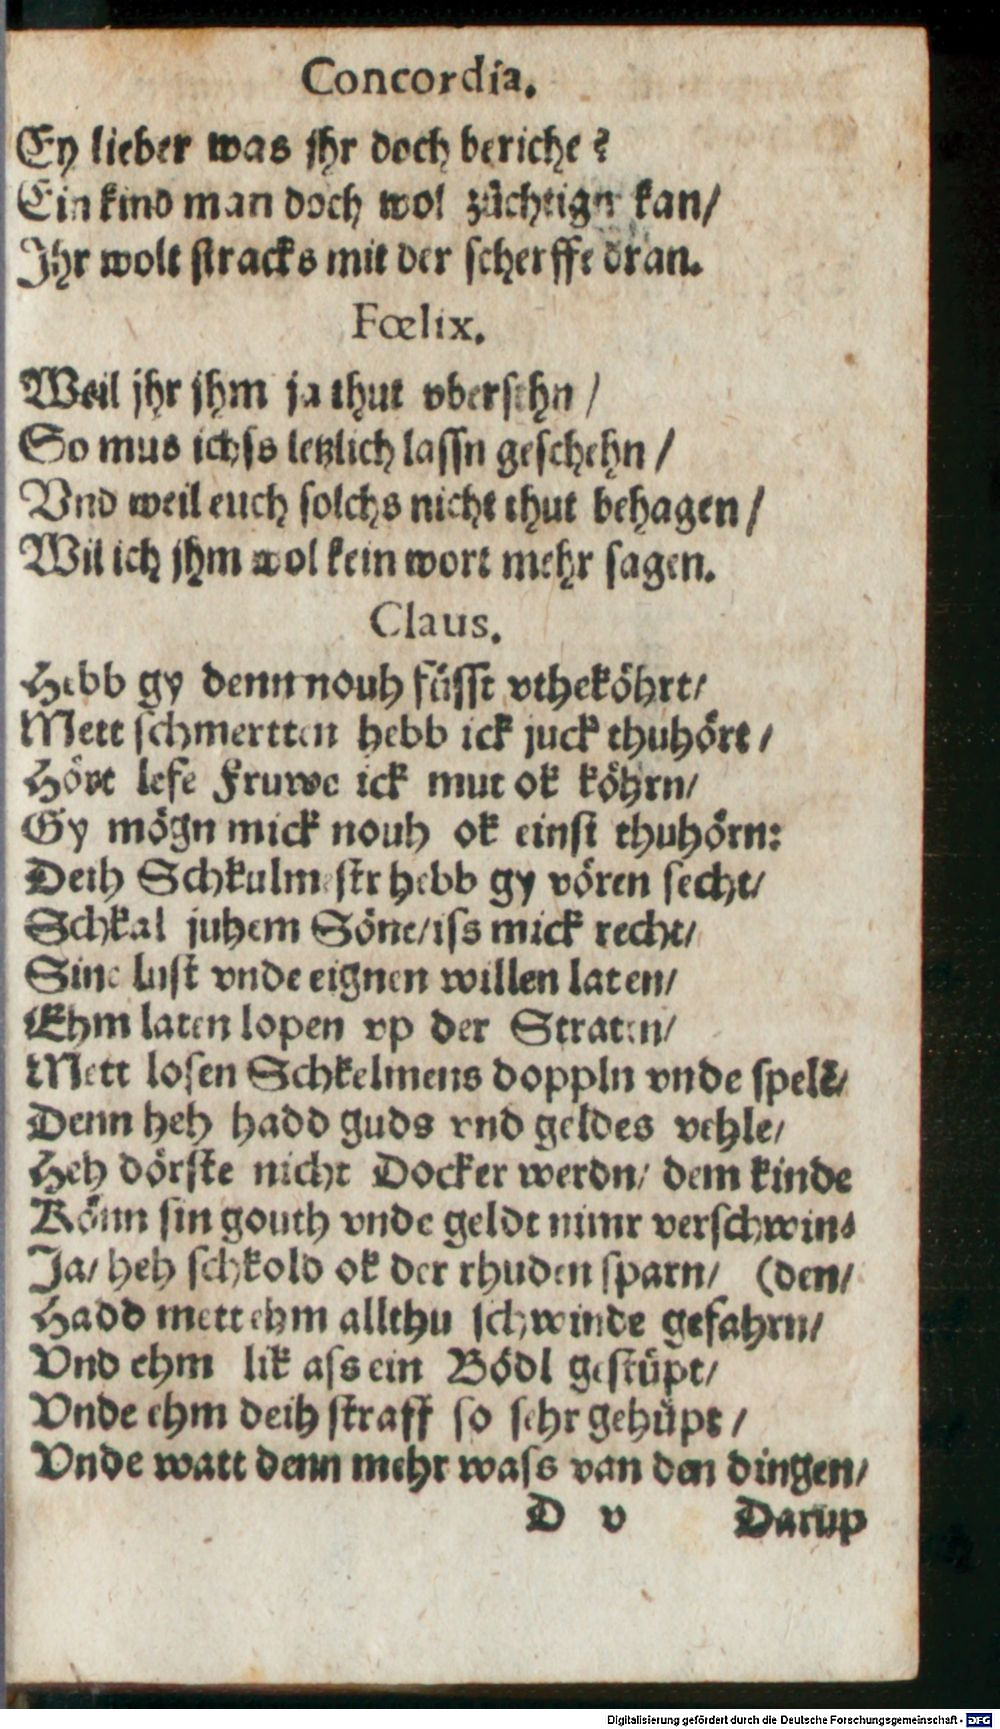 Concordia.
Ey lieber was jhr doch bericht?
Ein kind man doch wol züchtign kan/
Jhr wolt stracks mit der scherffe dran.
Fœlix.
Weil jhr jhm ja thut vbersehn /
So mus ichs letzlich lassn geschehn /
Vnd weil euch solchs nicht thut behagen /
Wil ich jhm wol kein wort mehr sagen.
Claus.
Hebb gy denn nouh füsst vtheköhrt/
Mett schmertten hebb ick juck thuhört /
Hört lefe Fruwe ick mut ok köhrn/
Gy mögn mick nouh ok einst thuhörn:
Deih Schkulmestr hebb gy vören secht/
Schkal juhem Söne/iss mick recht/
Sine lust vnde eignen willen laten/
Ehm laten lopen vp der Straten/
Mett losen Schkelmens doppln vnde spelē/
Denn heh hadd guds vnd geldes vehle/
Heh dörste nicht Docker werdn/ dem kinde
Könn sin gouth vnde geldt nimr verschwin⸗
Ja/ heh schkold ok der rhuden sparn/ (den/
Hadd mett ehm allthu schwinde gefahrn/
Vnd ehm lik ass ein Bödl gestüpt/
Vnde ehm deih straff so sehr gehüpt /
Vnde watt denn mehr wass van den dingen/
D v Darup
Digitalisierung gefördert durch die Deutsche Forschungsgemeinschaft - DFG